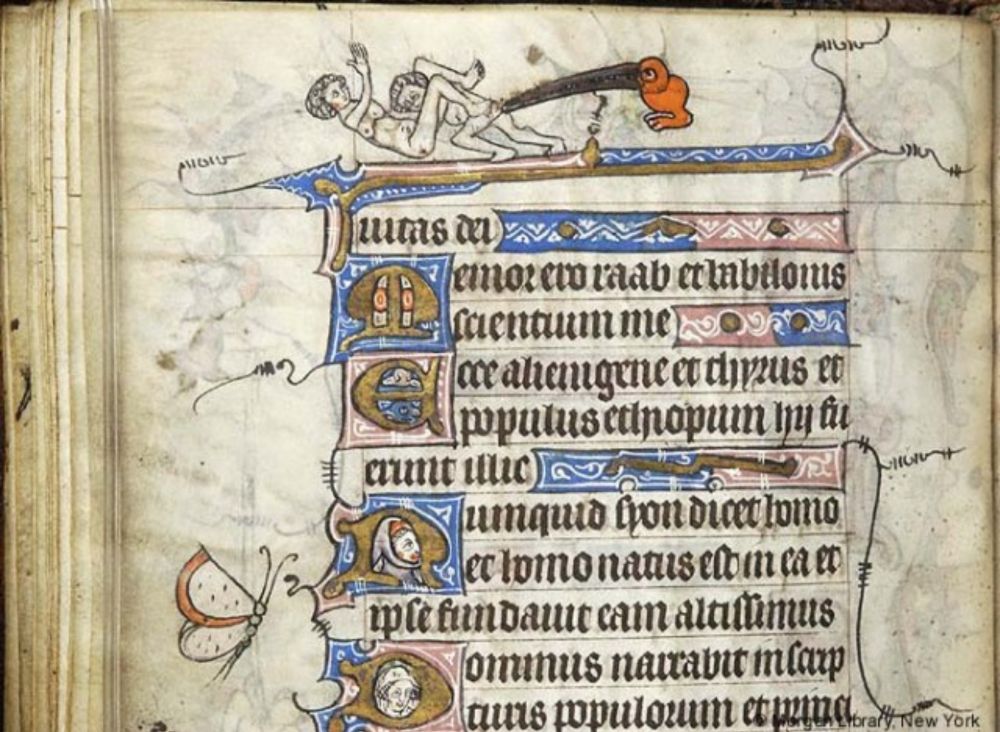 iuitas dei
Memor ero raab et babilonis
scientium me
Ecce alienigene et thyrus et
populus ethiopum hij fu
erunt illic
Numquid syon dicet homo
et homo natus est in ea et
ipse fundauit eam altissimus
Dominus narrabit in scrip
turis populorum et princi
© Morgan Library, New York